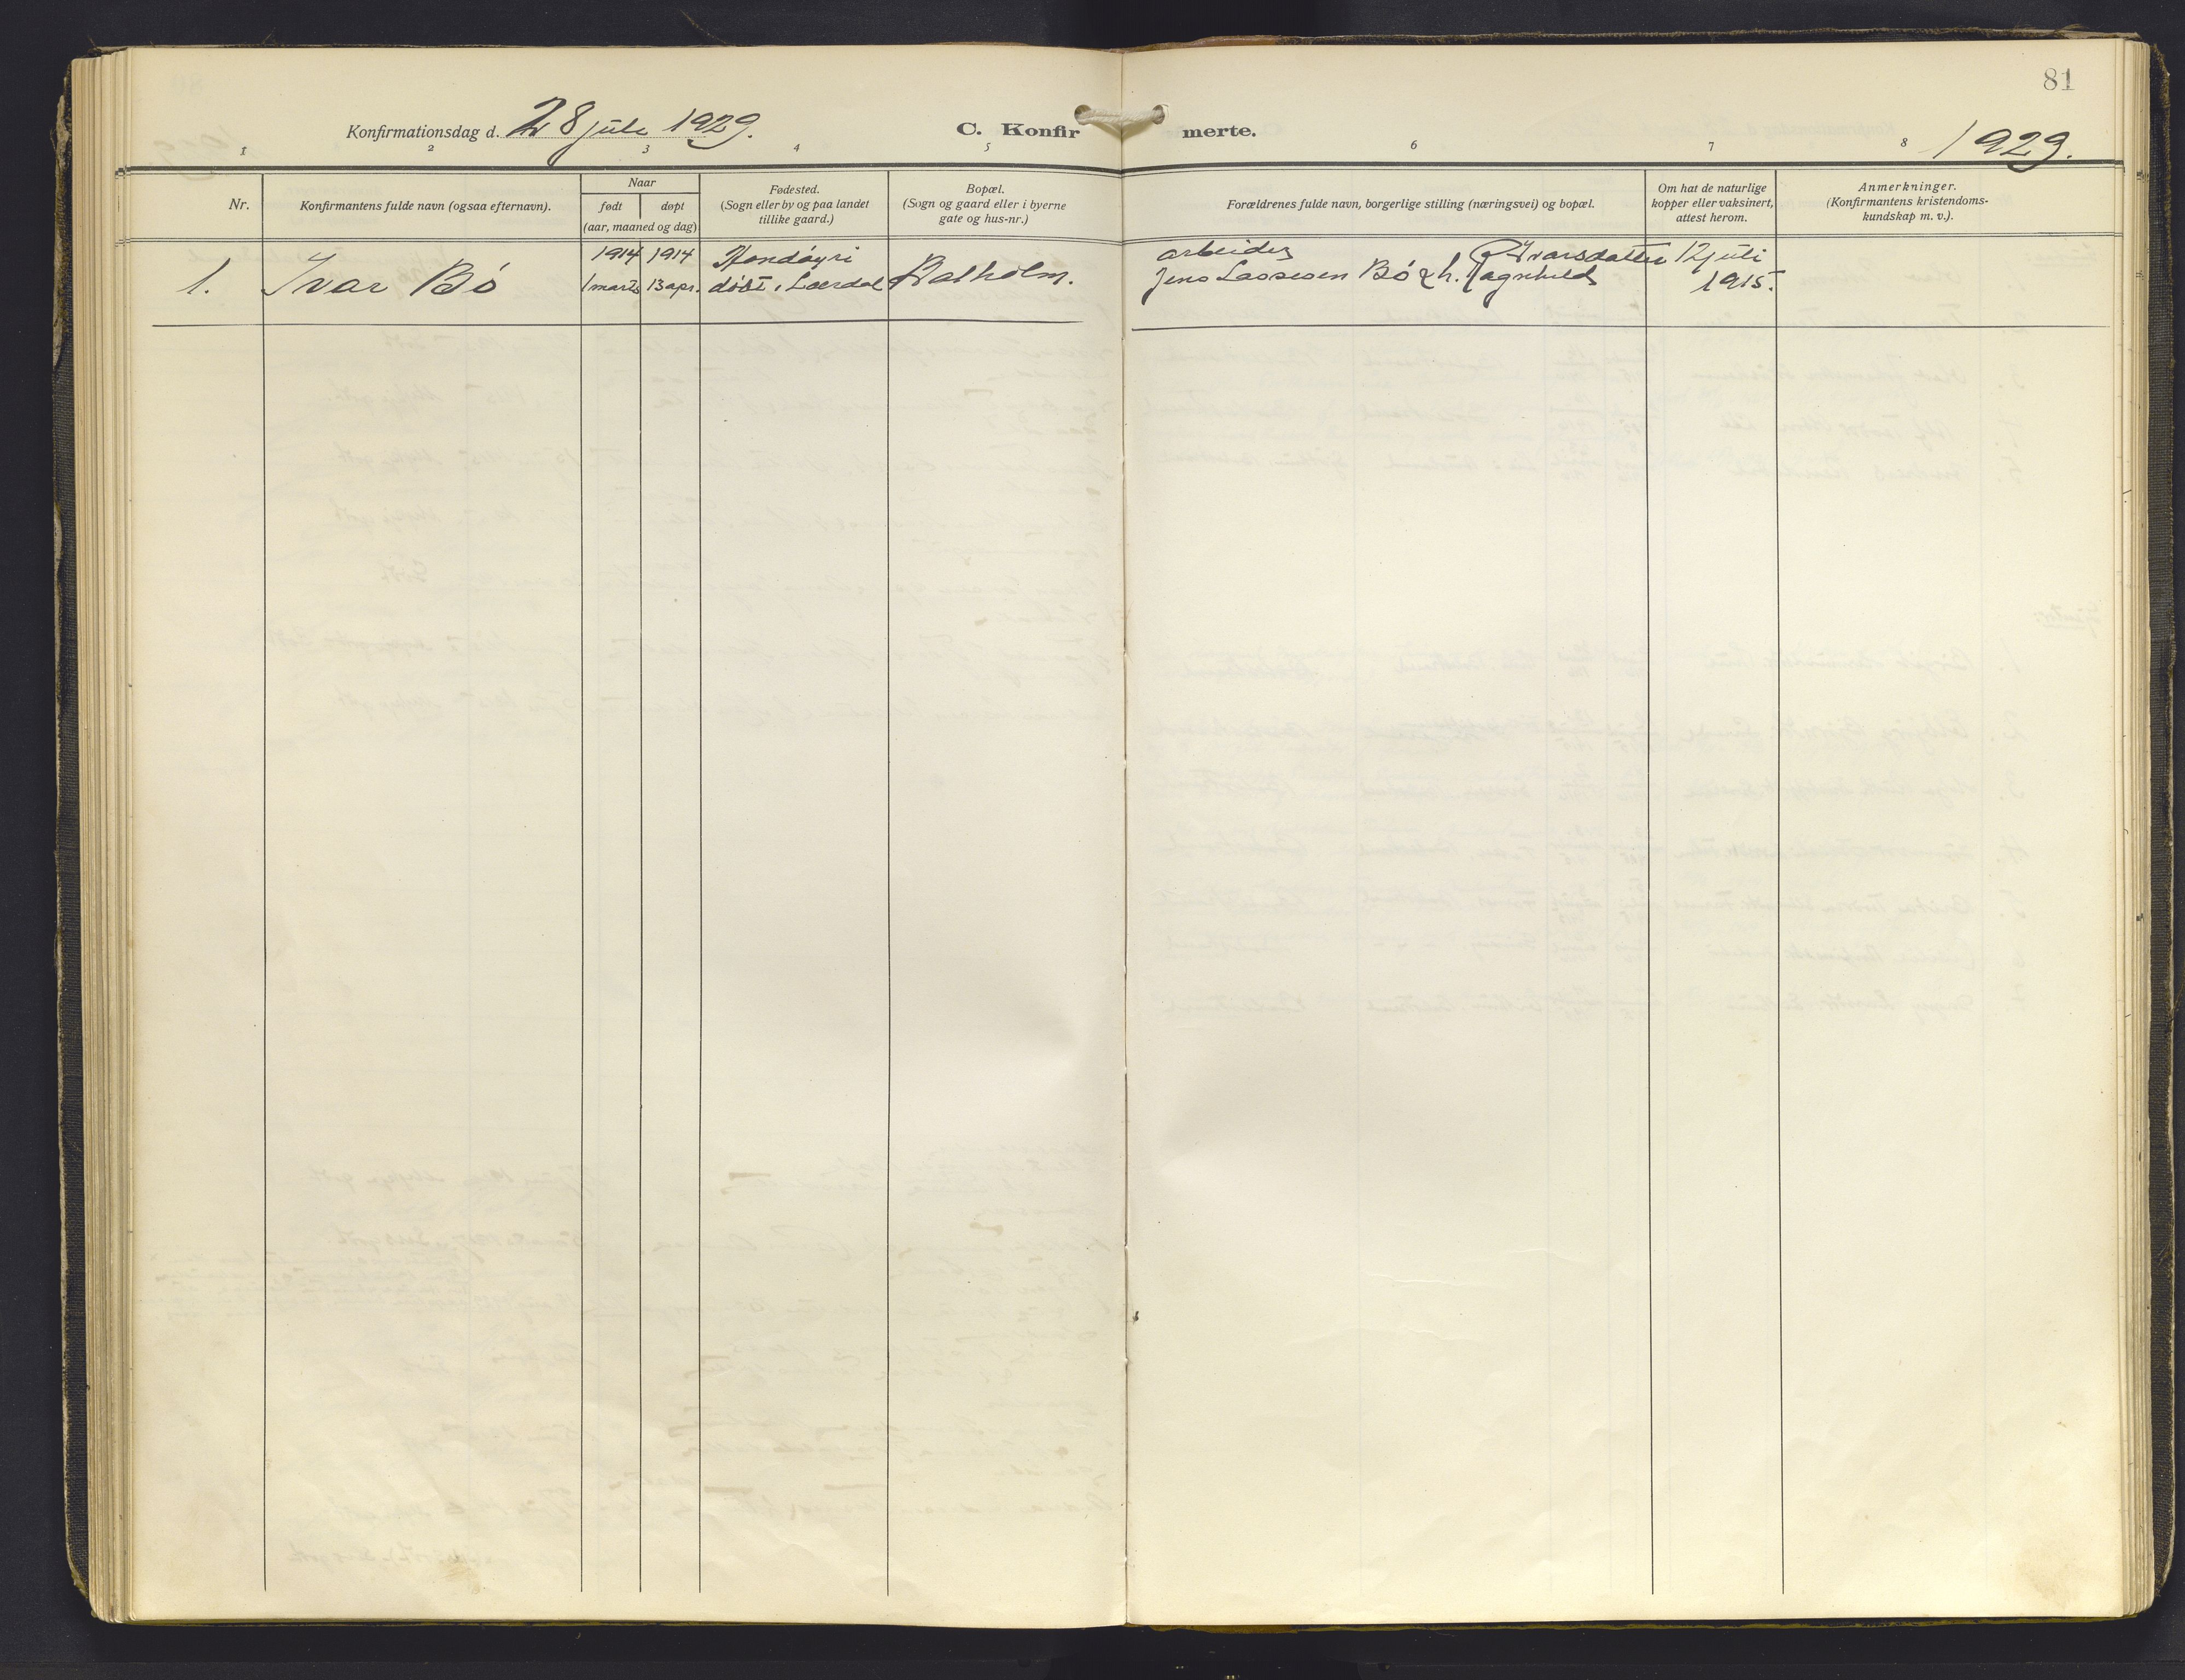 81
Konfirmationsdag d. 28 juli 1929.
C. Konfirmerte.
1929.
1 2 3 4 5 6 7 8
Nr.
Konfirmantens fulde navn (ogsaa efternavn).
Naar
født døpt
(aar, maaned og dag)
Fødested.
(Sogn eller by og paa landet
tillike gaard.)
Bopæl.
(Sogn og gaard eller i byerne
gate og hus-nr.)
Forældrenes fulde navn, borgerlige stilling (næringsvei) og bopæl.
Om hat de naturlige
kopper eller vaksinert,
attest herom.
Anmerkninger.
(Konfirmantens kristendoms-
kundskap m. v.).
1914 1914 arbeider Ivarsdatter 12 juli
1. Ivar Bö 1 marts 13 apr. döbt i Laerdal Balholm. Jens Lassesen Bö & h. Ragnhild 1915.